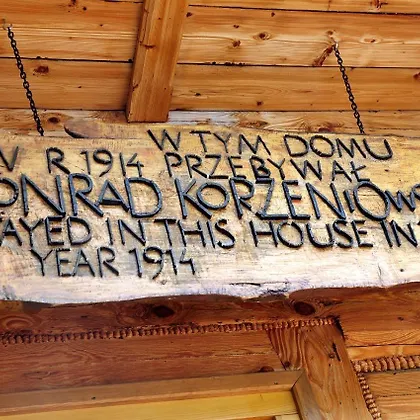 W TYM DOMU
W R 1914 PRZEBYWAŁ
ONRAD KORZENIOW
AYED IN THIS HOUSE IN
YEAR 1914